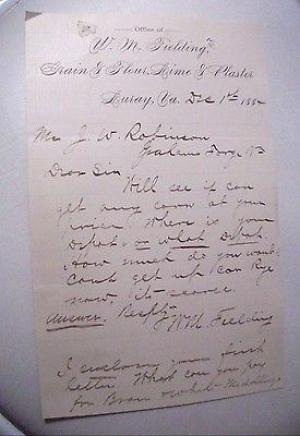 Office of
W. M. Fielding,
Grain & Flour, Lime & Plaster
Luray, Va. Dec 1st 188
Mr J. W. Robinson
Grahams Forge Va
Dear Sir
Will see if can
get any corn at your
price Where is your
Depot, or what Depot.
How much do you want
cant get up can Rye
now its scarce.
Answer. Resptly
W M Fielding
I enclose your first
letter. What can you pay
for Bran & white Middlings